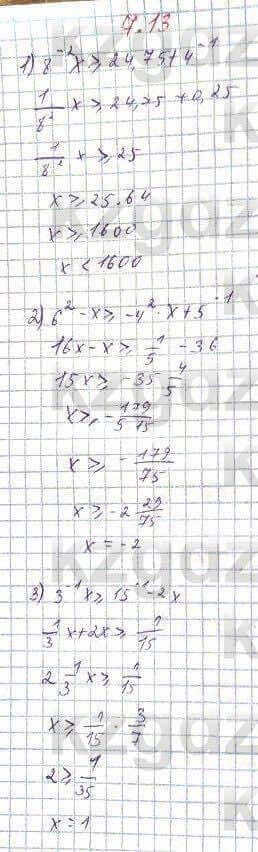 7.13
1) 8⁻²x ≥ 24,75 + 4⁻¹
1/8² x ≥ 24,75 + 0,25
1/8² x ≥ 25
x ≥ 25·64
x ≥ 1600
x < 1600
2) 6² - x ≥ -4²·x + 5⁻¹
16x - x ≥ 1/5 - 36
15x ≥ -35 4/5
x ≥ - 179/5·15
x ≥ - 179/75
x ≥ -2 29/75
x = -2
3) 3⁻¹x ≥ 15⁻¹ - 2x
1/3 x + 2x ≥ 1/15
2 1/3 x ≥ 1/15
x ≥ 1/15 · 3/7
2 ≥ 1/35
x = 1